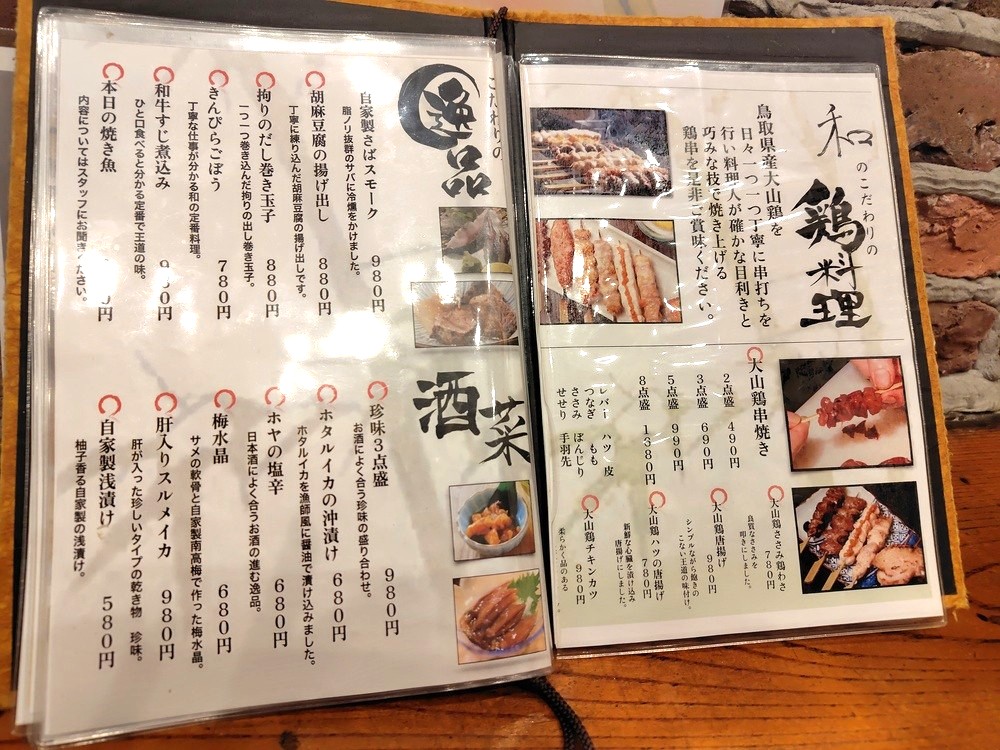 和のこだわりの
鶏料理
鳥取県産大山鶏を
日々一つ一つ丁寧に串打ちを
行い料理人が確かな目利きと
巧みな技で焼き上げる
鶏串を是非ご賞味ください。
大山鶏串焼き
2点盛 490円
3点盛 690円
5点盛 990円
8点盛 1380円
レバー ハツ 皮
つなぎ もも
ささみ ぼんじり
せせり 手羽先
大山鶏ささみ鶏わさ 780円
良質なささみを
叩きにしました。
大山鶏唐揚げ 980円
シンプルながら飽きの
こない王道の味付け。
大山鶏ハツの唐揚げ 780円
新鮮な心臓を漬け込み
唐揚げにしました。
大山鶏チキンカツ 980円
柔らかく品のある
こだわりの
逸品
自家製さばスモーク 980円
脂ノリ抜群のサバに冷燻をかけました。
胡麻豆腐の揚げ出し 880円
丁寧に練り込んだ胡麻豆腐の揚げ出しです。
拘りのだし巻き玉子 880円
一つ一つ巻き込んだ拘りの出し巻き玉子。
きんぴらごぼう 780円
丁寧な仕事が分かる和の定番料理。
和牛すじ煮込み 980円
ひと口食べると分かる定番で王道の味。
本日の焼き魚 円
内容についてはスタッフにお聞きください。
酒菜
珍味3点盛 980円
お酒によく合う珍味の盛り合わせ。
ホタルイカの沖漬け 680円
ホタルイカを漁師風に醤油で漬け込みました。
ホヤの塩辛 680円
日本酒によく合うお酒の進む逸品。
梅水晶 680円
サメの軟骨と自家製南高梅で作った梅水晶。
肝入りスルメイカ 980円
肝が入った珍しいタイプの乾き物 珍味。
自家製浅漬け 580円
柚子香る自家製の浅漬け。